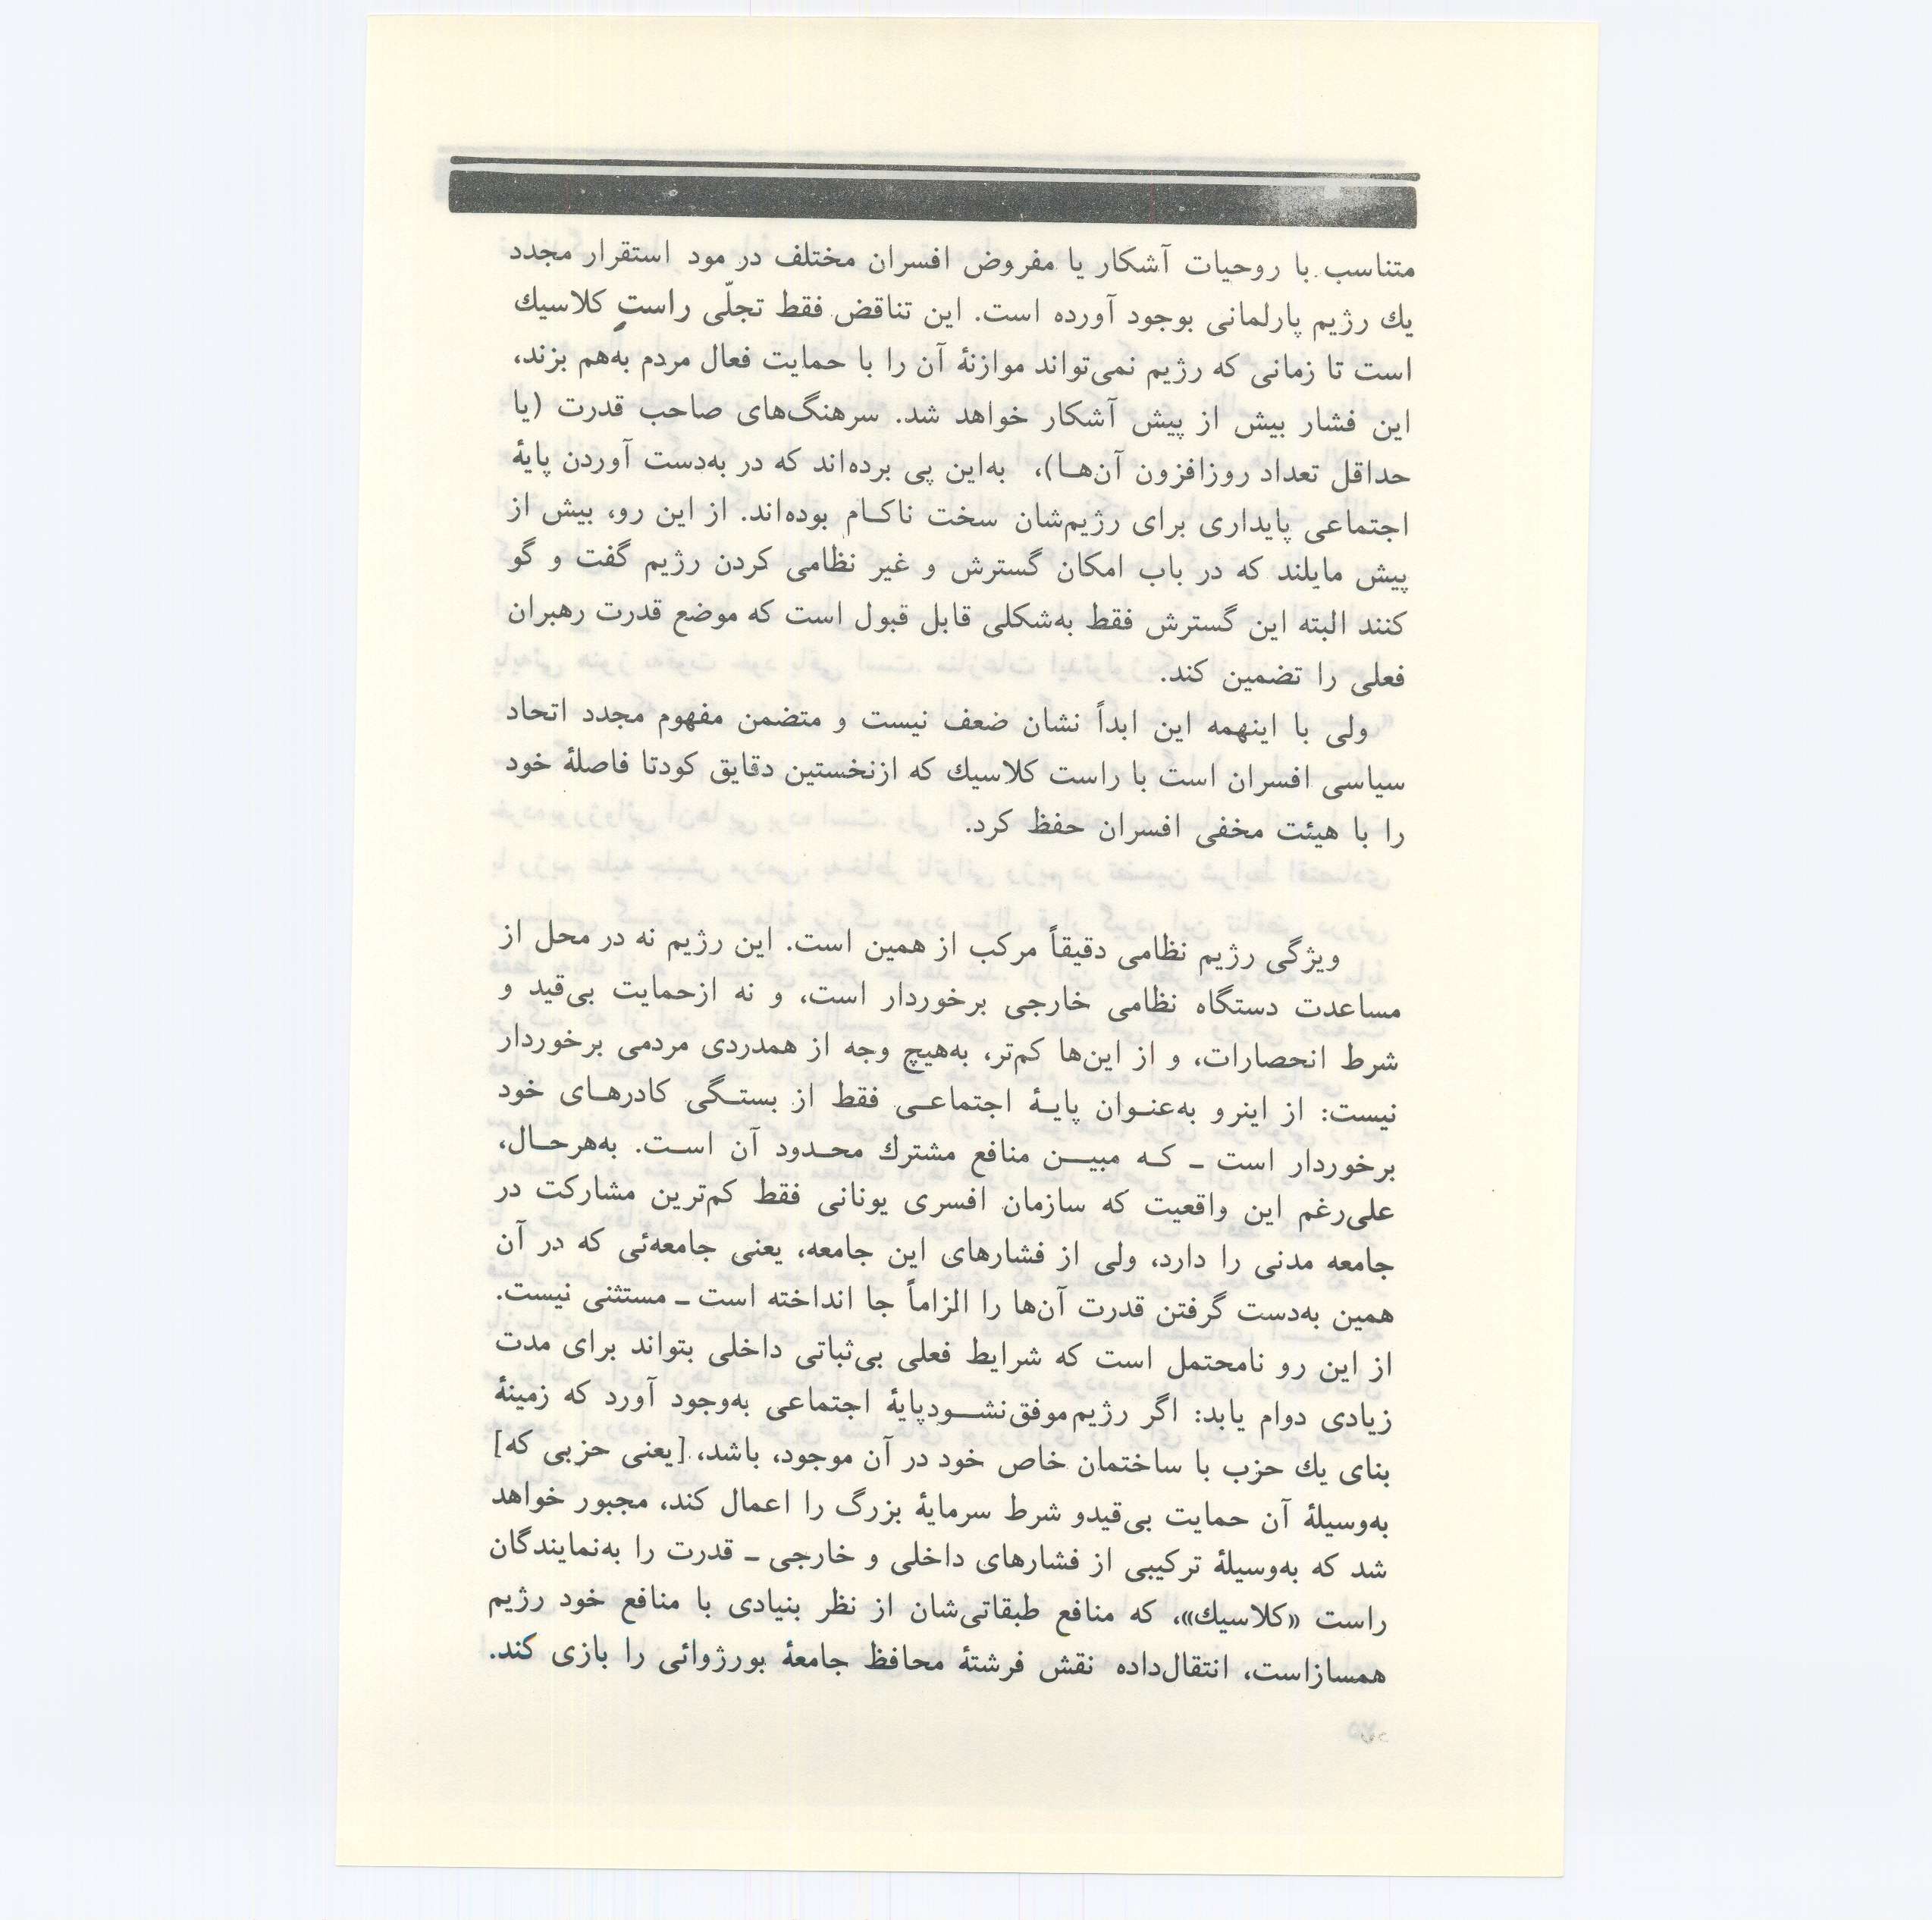 متناسب با روحیات آشکار یا مفروض افسران مختلف در مود استقرار مجدد
یك رژیم پارلمانی بوجود آورده است. این تناقض فقط تجلّی راستِ کلاسیك
است تا زمانی که رژیم نمی‌تواند موازنهٔ آن را با حمایت فعال مردم به‌هم بزند،
این فشار بیش از پیش آشکار خواهد شد. سرهنگ‌های صاحب قدرت (یا
حداقل تعداد روزافزون آن‌هـا)، به‌این پی برده‌اند که در به‌دست آوردن پایهٔ
اجتماعی پایداری برای رژیم‌شان سخت ناکـام بوده‌اند. از این رو، بیش از
پیش مایلند که در باب امکان گسترش و غیر نظامی کردن رژیم گفت و گو
کنند البته این گسترش فقط به‌شکلی قابل قبول است که موضع قدرت رهبران
فعلی را تضمین کند.
ولی با اینهمه این ابداً نشان ضعف نیست و متضمن مفهوم مجدد اتحاد
سیاسی افسران است با راست کلاسیك که ازنخستین دقایق کودتا فاصلهٔ خود
را با هیئت مخفی افسران حفظ کرد.
ویژگی رژیم نظامی دقیقاً مرکب از همین است. این رژیم نه در محل از
مساعدت دستگاه نظامی خارجی برخوردار است، و نه ازحمایت بی‌قید و
شرط انحصارات، و از این‌ها کم‌تر، به‌هیچ وجه از همدردی مردمی برخوردار
نیست: از اینرو به‌عنـوان پایـهٔ اجتماعـی فقط از بستـگی کادرهـای خود
برخوردار است ـ کـه مبیـــن منافع مشترك محـدود آن اسـت. به‌هرحـال،
علی‌رغم این واقعیت که سازمان افسری یونانی فقط کم‌ترین مشارکت در
جامعه مدنی را دارد، ولی از فشارهای این جامعه، یعنی جامعه‌ئی که در آن
همین به‌دست گرفتن قدرت آن‌ها را الزاماً جا انداخته است ـ مستثنی نیست.
از این رو نامحتمل است که شرایط فعلی بی‌ثباتی داخلی بتواند برای مدت
زیادی دوام یابد: اگر رژیم موفق‌نشـــودپایهٔ اجتماعی به‌وجود آورد که زمینهٔ
بنای یك حزب با ساختمان خاص خود در آن موجود، باشد، [یعنی حزبی که]
به‌وسیلهٔ آن حمایت بی‌قیدو شرط سرمایهٔ بزرگ را اعمال کند، مجبور خواهد
شد که به‌وسیلهٔ ترکیبی از فشارهای داخلی و خارجی ـ قدرت را به‌نمایندگان
راست «کلاسیك»، که منافع طبقاتی‌شان از نظر بنیادی با منافع خود رژیم
همسازاست، انتقال‌داده نقش فرشتهٔ محافظ جامعهٔ بورژوائی را بازی کند.